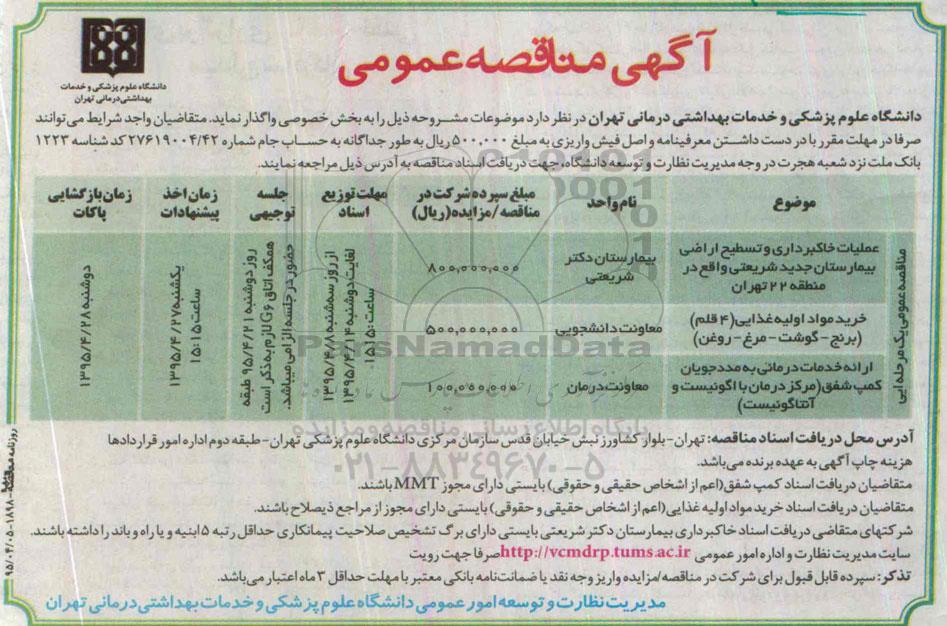 دانشگاه علوم پزشکی و خدمات
بهداشتی درمانی تهران
آگهی مناقصه عمومی
دانشگاه علوم پزشکی و خدمات بهداشتی درمانی تهران در نظر دارد موضوعات مشروحه ذیل را به بخش خصوصی واگذار نماید. متقاضیان واجد شرایط می توانند
صرفا در مهلت مقرر با در دست داشتن معرفینامه و اصل فیش واریزی به مبلغ ۵۰۰,۰۰۰ ریال به طور جداگانه به حساب جام شماره ۲۷۶۱۹۰۰۴/۴۲ کد شناسه ۱۲۲۳
بانک ملت نزد شعبه هجرت در وجه مدیریت نظارت و توسعه دانشگاه، جهت دریافت اسناد مناقصه به آدرس ذیل مراجعه نمایند.
موضوع
نام واحد
مبلغ سپرده شرکت در
مناقصه/مزایده(ریال)
مهلت توزیع
اسناد
جلسه
توجیهی
زمان اخذ
پیشنهادات
زمان بازگشایی
پاکات
مناقصه عمومی یک مرحله ایی
عملیات خاکبرداری و تسطیح اراضی
بیمارستان جدید شریعتی واقع در
منطقه ۲۲ تهران
بیمارستان دکتر
شریعتی
۸۰۰,۰۰۰,۰۰۰
خرید مواد اولیه غذایی(۴ قلم)
(برنج - گوشت - مرغ - روغن)
معاونت دانشجویی
۵۰۰,۰۰۰,۰۰۰
ارائه خدمات درمانی به مددجویان
کمپ شفق(مرکز درمان با اگونیست و
آنتاگونیست)
معاونت درمان
۱۰۰,۰۰۰,۰۰۰
از روز سه شنبه ۱۳۹۵/۴/۸
لغایت دوشنبه ۱۳۹۵/۴/۱۴
ساعت: ۱۵:۱۵
روز دوشنبه ۹۵/۴/۲۱ طبقه
همکف اتاق G۶ لازم به ذکر است
حضور در جلسه الزامی میباشد.
یکشنبه ۱۳۹۵/۴/۲۷
ساعت ۱۵:۱۵
دوشنبه ۱۳۹۵/۴/۲۸
ParsNamadData
پایگاه اطلاع رسانی مناقصه و مزایده
۰۲۱-۸۸۳۴۹۶۷۰-۵
آدرس محل دریافت اسناد مناقصه: تهران - بلوار کشاورز نبش خیابان قدس سازمان مرکزی دانشگاه علوم پزشکی تهران - طبقه دوم اداره امور قراردادها
هزینه چاپ آگهی به عهده برنده می باشد.
متقاضیان دریافت اسناد کمپ شفق(اعم از اشخاص حقیقی و حقوقی) بایستی دارای مجوز MMT باشند.
متقاضیان دریافت اسناد خرید مواد اولیه غذایی(اعم از اشخاص حقیقی و حقوقی) بایستی دارای مجوز از مراجع ذیصلاح باشند.
شرکتهای متقاضی دریافت اسناد خاکبرداری بیمارستان دکتر شریعتی بایستی دارای برگ تشخیص صلاحیت پیمانکاری حداقل رتبه ۵ ابنیه و یا راه و باند را داشته باشند.
سایت مدیریت نظارت و اداره امور عمومی http://vcmdrp.tums.ac.ir صرفا جهت رویت
تذکر: سپرده قابل قبول برای شرکت در مناقصه/مزایده واریز وجه نقد یا ضمانت نامه بانکی معتبر با مهلت حداقل ۳ ماه اعتبار می باشد.
مدیریت نظارت و توسعه امور عمومی دانشگاه علوم پزشکی و خدمات بهداشتی درمانی تهران
۹۵/۰۴/۰۵-۱۸۹۸